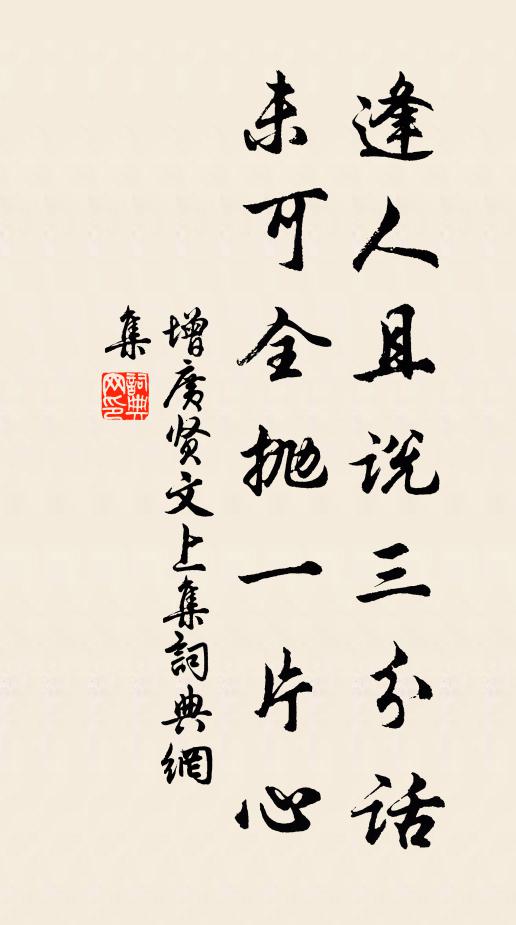 逢人且说三分话
未可全抛一片心
增广贤文上集詞典網
集
詞典
网印